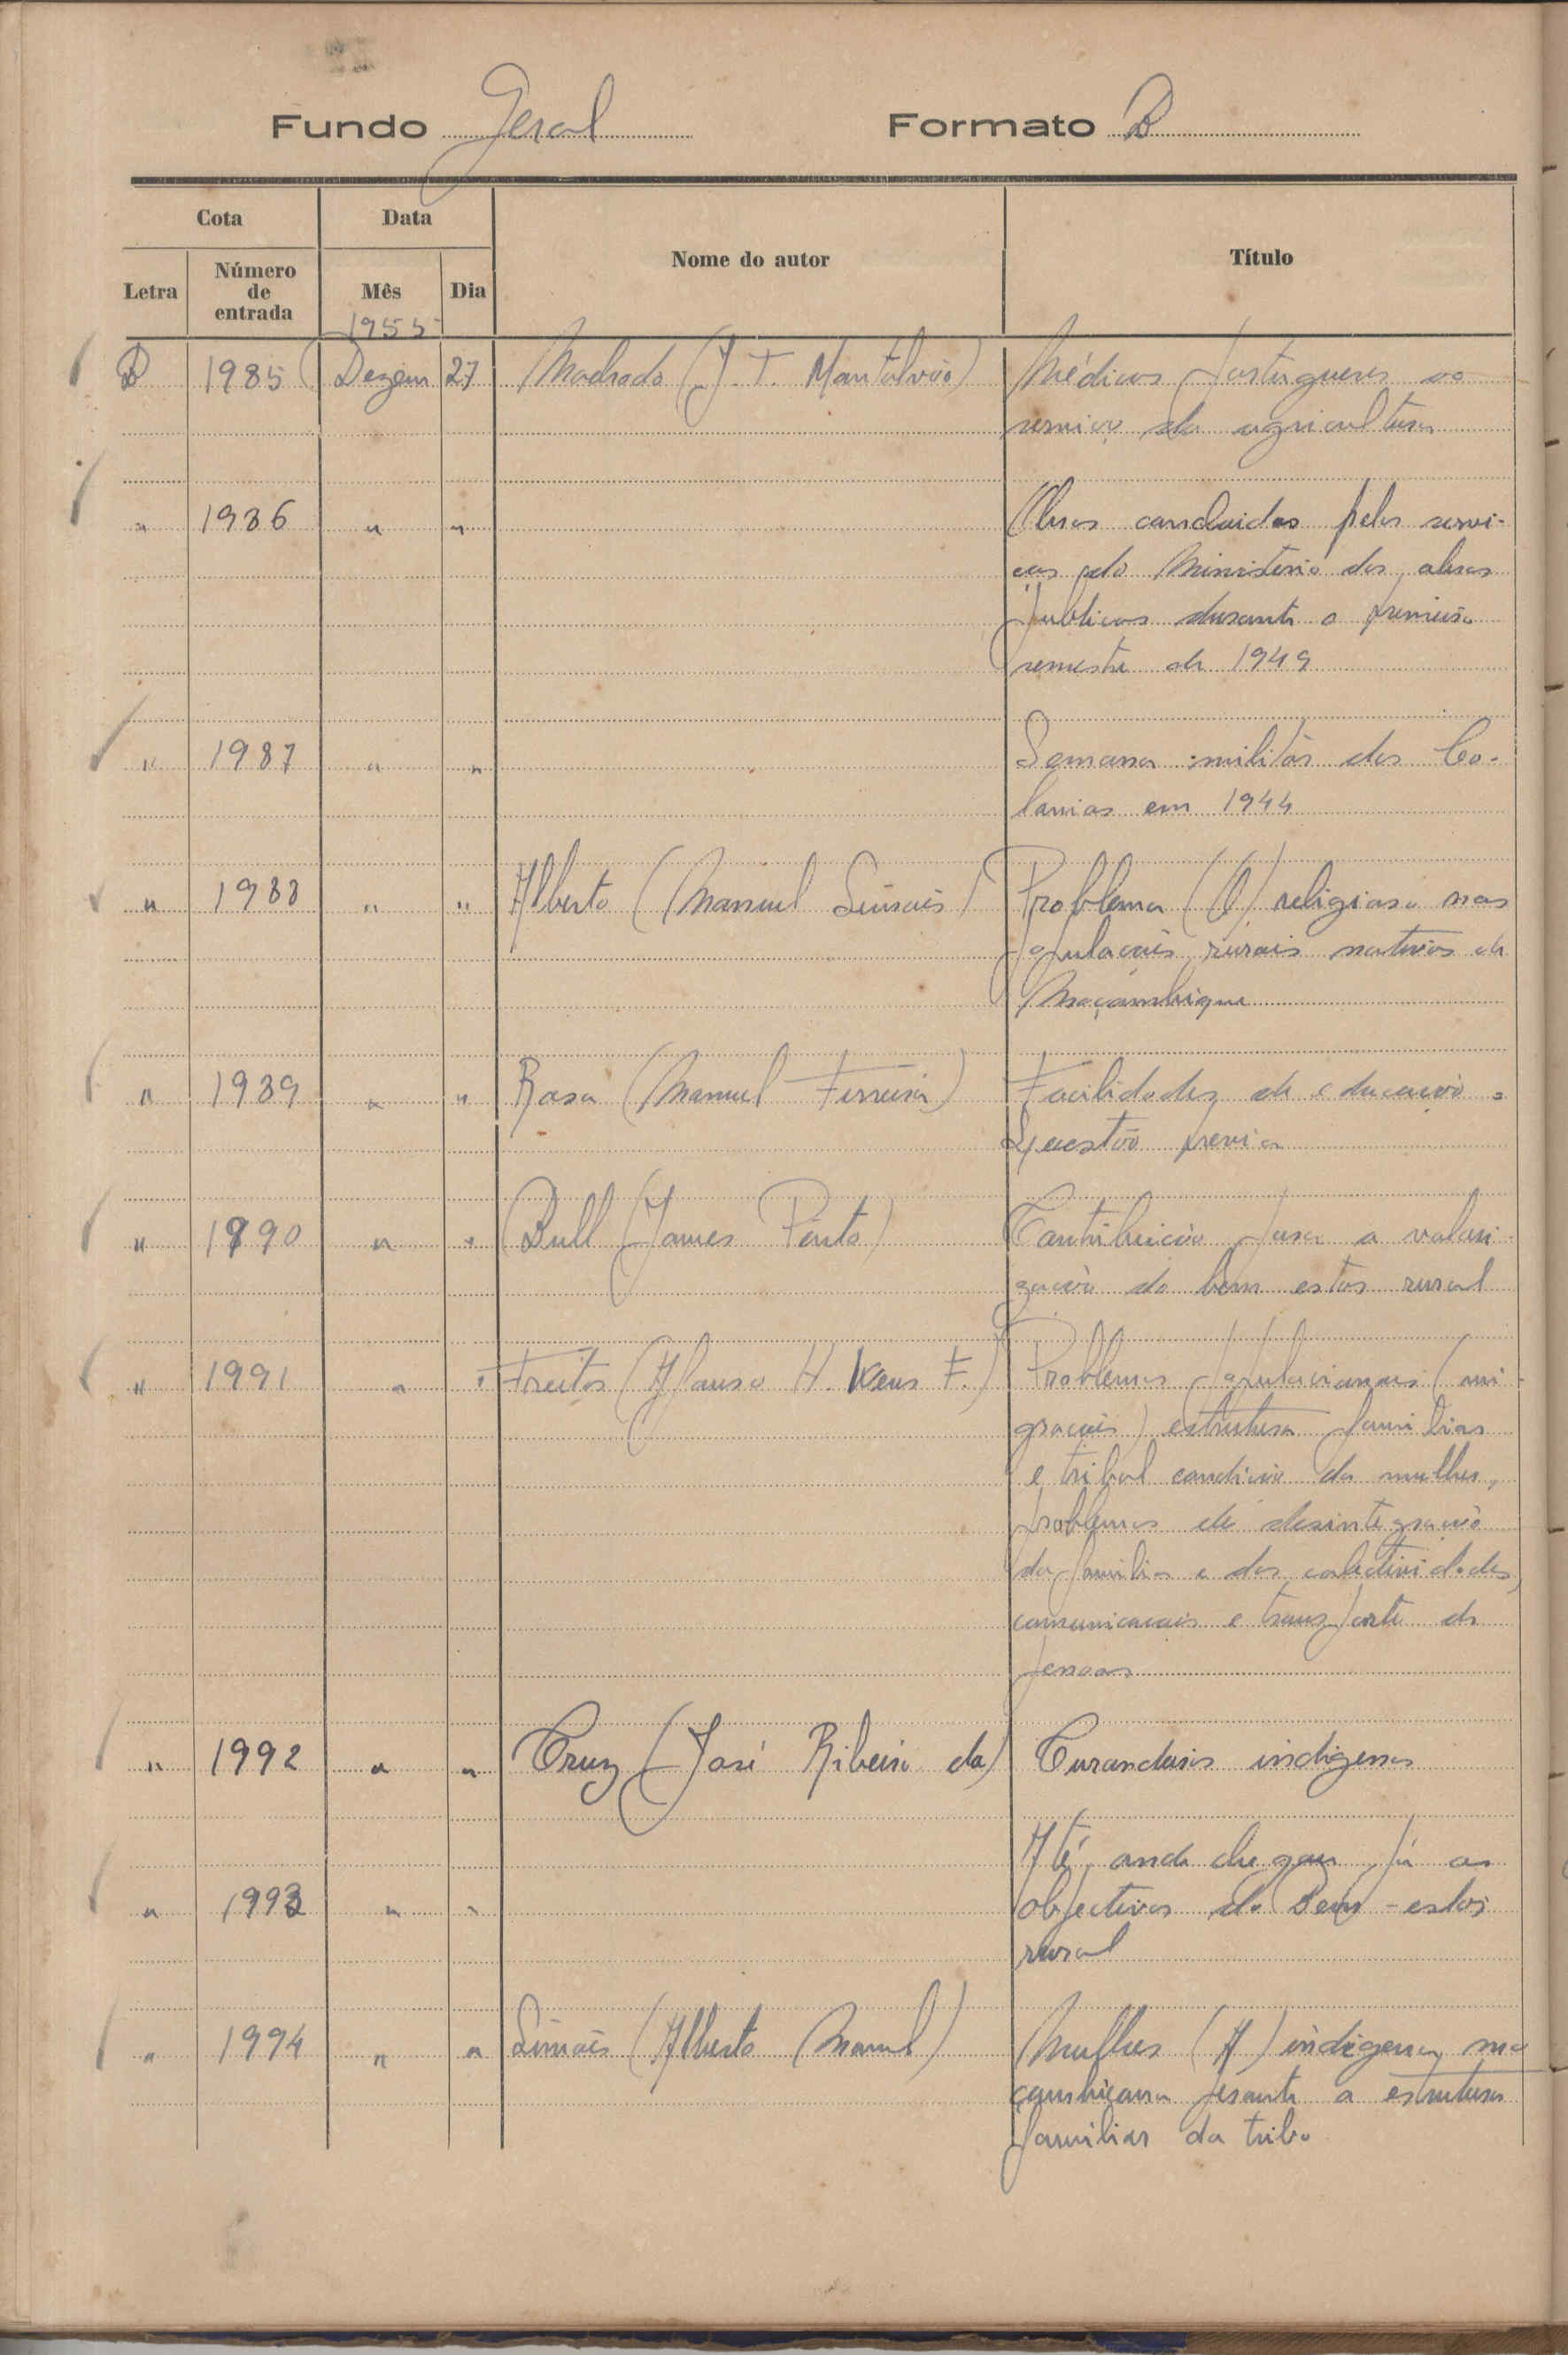 Fundo Geral Formato B
Cota Data Nome do autor Título
Letra Número de entrada Mês Dia
1955
B 1985 Dezem 27 Machado (J. T. Montalvão) Médicos portugueses ao
serviço da agricultura
" 1986 " " Obras concluidas pelos servi-
ços do Ministério das obras
publicas durante o primeiro
semestre de 1949
" 1987 " " Semana militar das Co-
lonias em 1944
" 1988 " " Alberto (Manuel Simões) Problema (O) religioso nas
populações rurais nativas de
Moçambique
" 1989 " " Rosa (Manuel Ferreira) Facilidades de educação =
Questão previa
" 1990 " " Bull (James Pinto) Contribuição para a valori-
zação do bem estar rural
" 1991 " " Freitas (Afonso H. Ivens F.) Problemas populacionais (mi-
grações) estrutura familiar
e tribal condição da mulher,
problemas de desintegração
da familia e das colectividades,
comunicações e transporte de
pessoas
" 1992 " " Cruz (José Ribeiro da) Curandeiros indigenas
Até onde chegam já os
" 1993 " " objectivos do Bem-estar
rural
" 1994 " " Simões (Alberto Manuel) Mulher (A) indigena mo
çambicana perante a estrutura
familiar da tribo